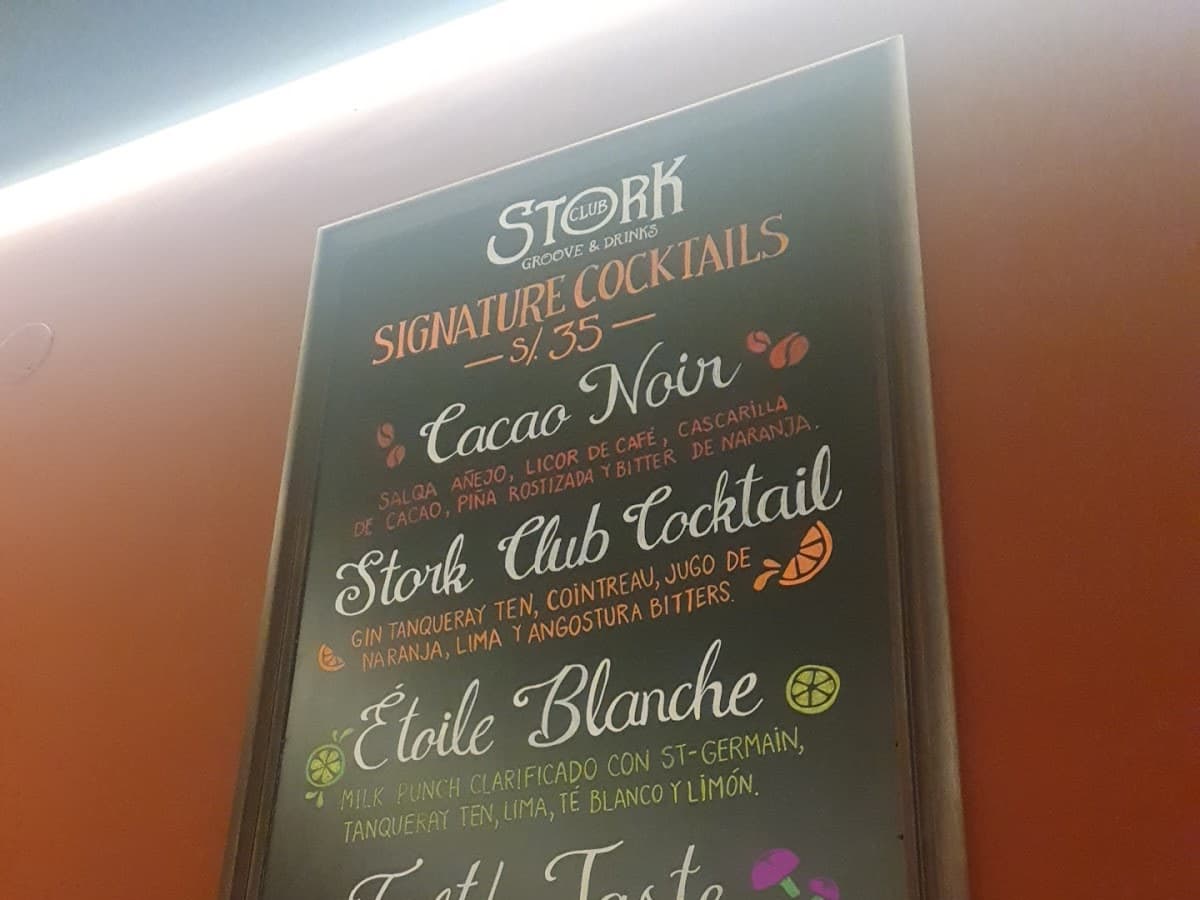 STORK
CLUB
GROOVE & DRINKS
SIGNATURE COCKTAILS
— S/. 35 —
Cacao Noir
SALQA AÑEJO, LICOR DE CAFÉ, CASCARILLA
DE CACAO, PIÑA ROSTIZADA Y BITTER DE NARANJA.
Stork Club Cocktail
GIN TANQUERAY TEN, COINTREAU, JUGO DE
NARANJA, LIMA Y ANGOSTURA BITTERS.
Étoile Blanche
MILK PUNCH CLARIFICADO CON ST-GERMAIN,
TANQUERAY TEN, LIMA, TÉ BLANCO Y LIMÓN.
Taste